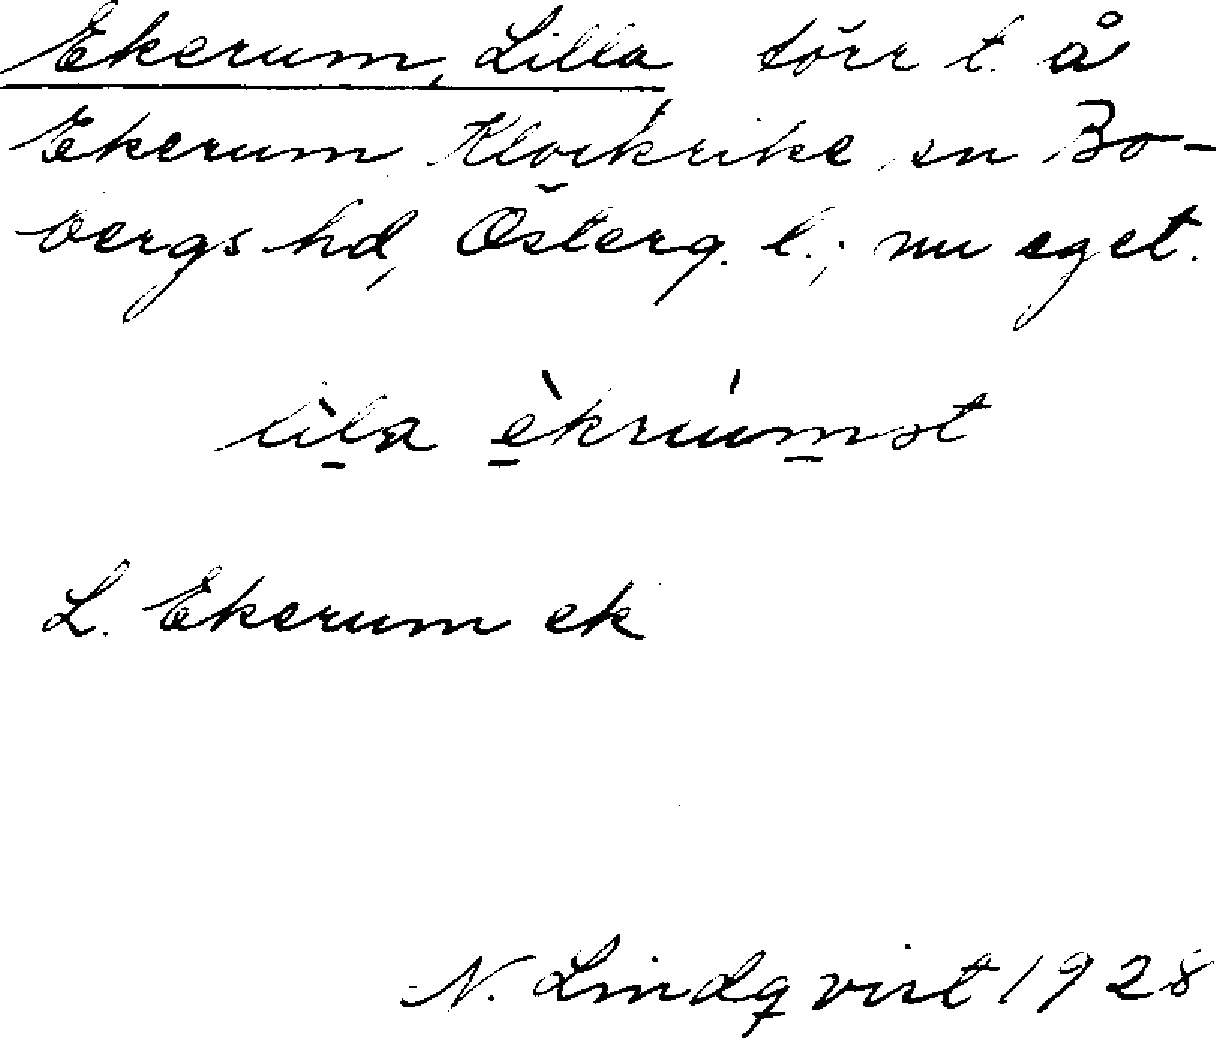 Ekerum, Lilla förr t. å
Ekerum Klockrike sn Bo-
bergs hd, Österg. l.; nu eget.
lìla èkrúmst
L. Ekerum ek
N. Lindqvist 1928